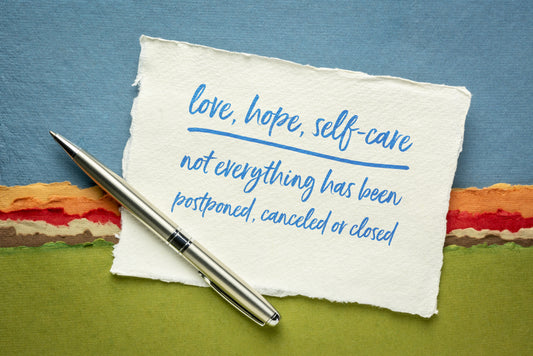 love, hope, self-care
not everything has been
postponed, canceled or closed